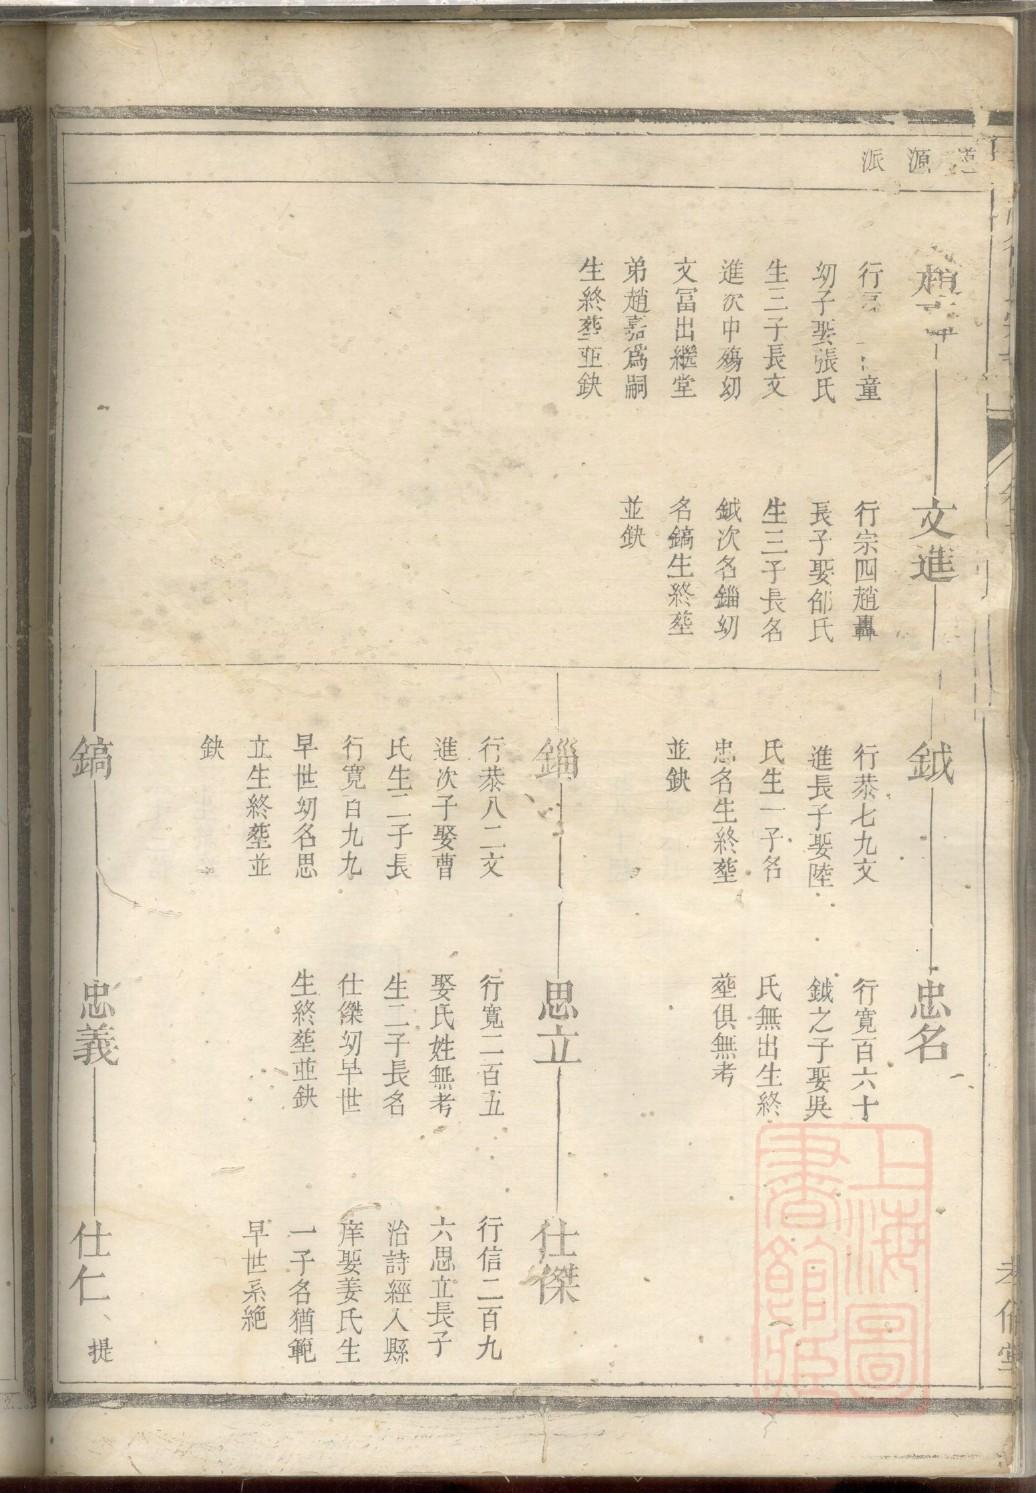 源派
趙
行童
幼子娶張氏
生三子長文
進次中殤幼
文冨出繼堂
弟趙嘉爲嗣
生終塟並缺
文進
行宗四趙轟
長子娶郤氏
生三子長名
鉞次名錙幼
名鎬生終塟
並缺
鉞
行恭七九文
進長子娶陸
氏生一子名
忠名生終塟
並缺
忠名
行寛百六十
鉞之子娶吳
氏無出生終
塟俱無考
錙
行恭八二文
進次子娶曹
氏生二子長
行寛百九九
早世幼名思
立生終塟並
缺
思立
行寛二百五
娶氏姓無考
生二子長名
仕傑幼早世
生終塟並缺
仕傑
行信二百九
六思立長子
治詩經入縣
庠娶姜氏生
一子名猶範
早世系絶
鎬
忠義
仕仁、提
上海圖
書館藏